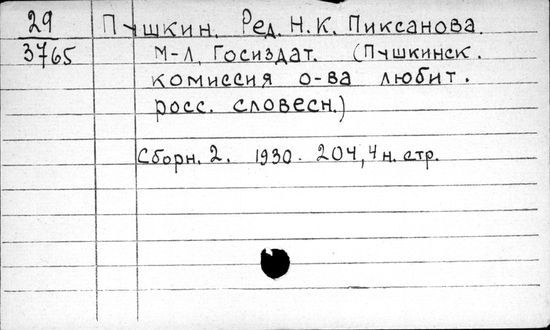 29 Пушкин. Ред. Н.К. Пиксанова.
3765 М-Л, Госиздат. (Пушкинск.
комиссия о-ва любит.
росс. словесн.)
Сборн. 2. 1930. 204, 4 н. стр.